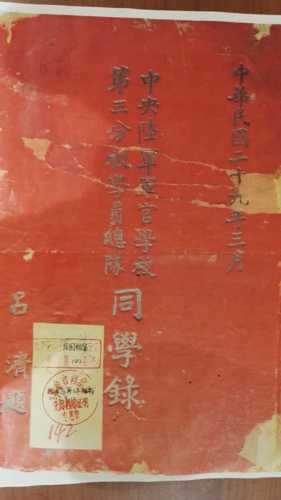 中華民國二十九年三月
中央陸軍軍官學校
第三分校學員總隊
同學錄
呂濟題
142